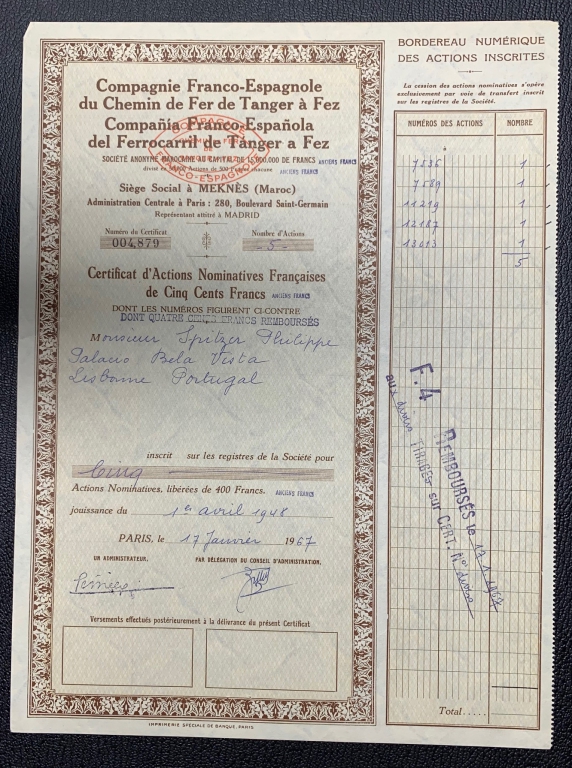 Compagnie Franco-Espagnole
du Chemin de Fer de Tanger à Fez
Compañia Franco-Española
del Ferrocarril de Tánger a Fez
SOCIÉTÉ ANONYME MAROCAINE AU CAPITAL DE 15.000.000 DE FRANCS ANCIENS FRANCS
divisé en Actions de 500 Francs chacune ANCIENS FRANCS
Siège Social à MEKNÈS (Maroc)
Administration Centrale à Paris : 280, Boulevard Saint-Germain
Représentant attitré à MADRID
Numéro du Certificat
004,879
Nombre d'Actions
- 5 -
Certificat d'Actions Nominatives Françaises
de Cinq Cents Francs ANCIENS FRANCS
DONT LES NUMÉROS FIGURENT CI-CONTRE
DONT QUATRE CENTS FRANCS REMBOURSÉS
Monsieur Spitzer Philippe
Palacio Bela Vista
Lisbonne Portugal
inscrit sur les registres de la Société pour
Cinq
Actions Nominatives, libérées de 400 Francs, ANCIENS FRANCS
jouissance du 1er avril 1948
PARIS, le 17 Janvier 1967
UN ADMINISTRATEUR.
PAR DÉLÉGATION DU CONSEIL D'ADMINISTRATION.
Versements effectués postérieurement à la délivrance du présent Certificat
IMPRIMERIE SPÉCIALE DE BANQUE, PARIS
BORDEREAU NUMÉRIQUE
DES ACTIONS INSCRITES
La cession des actions nominatives s'opère
exclusivement par voie de transfert inscrit
sur les registres de la Société.
NUMÉROS DES ACTIONS NOMBRE
7536 1
7589 1
11219 1
12187 1
13013 1
5
F. 4
REMBOURSÉS le
aux divers TIRAGES sur CERT. N° divers
Total